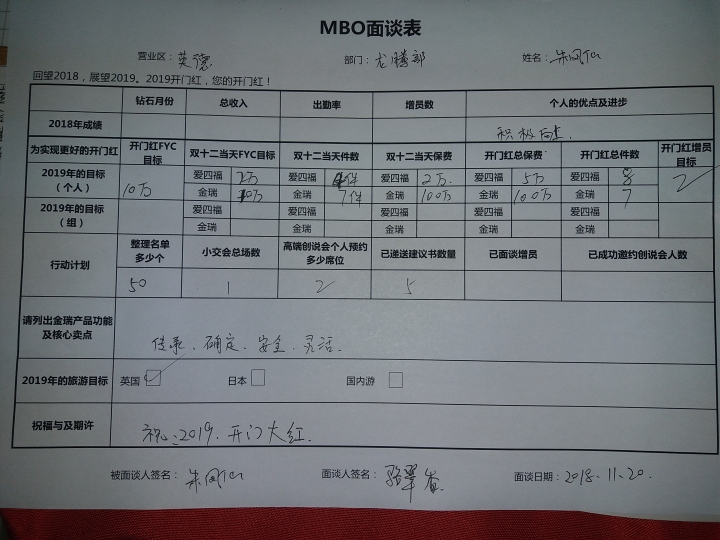 MBO面谈表
营业区：英德 部门：龙腾部 姓名：
回望2018，展望2019。2019开门红，您的开门红！
钻石月份 总收入 出勤率 增员数 个人的优点及进步
2018年成绩 积极向上.
为实现更好的开门红 开门红FYC目标 双十二当天FYC目标 双十二当天件数 双十二当天保费 开门红总保费 开门红总件数 开门红增员目标
2019年的目标（个人） 10万 爱四福 2万 爱四福 件 爱四福 2万. 爱四福 5万 爱四福 8 2
金瑞 10万 金瑞 7件 金瑞 100万 金瑞 100万 金瑞 7
2019年的目标（组） 爱四福 爱四福 爱四福 爱四福 爱四福
金瑞 金瑞 金瑞 金瑞 金瑞
行动计划 整理名单多少个 小交会总场数 高端创说会个人预约多少席位 已递送建议书数量 已面谈增员 已成功邀约创说会人数
50 1 2 5
请列出金瑞产品功能及核心卖点 传承.确定.安全.灵活.
2019年的旅游目标 英国 日本 国内游
祝福与及期许 祝:2019.开门大红.
被面谈人签名： 面谈人签名： 面谈日期：2018.11.20.